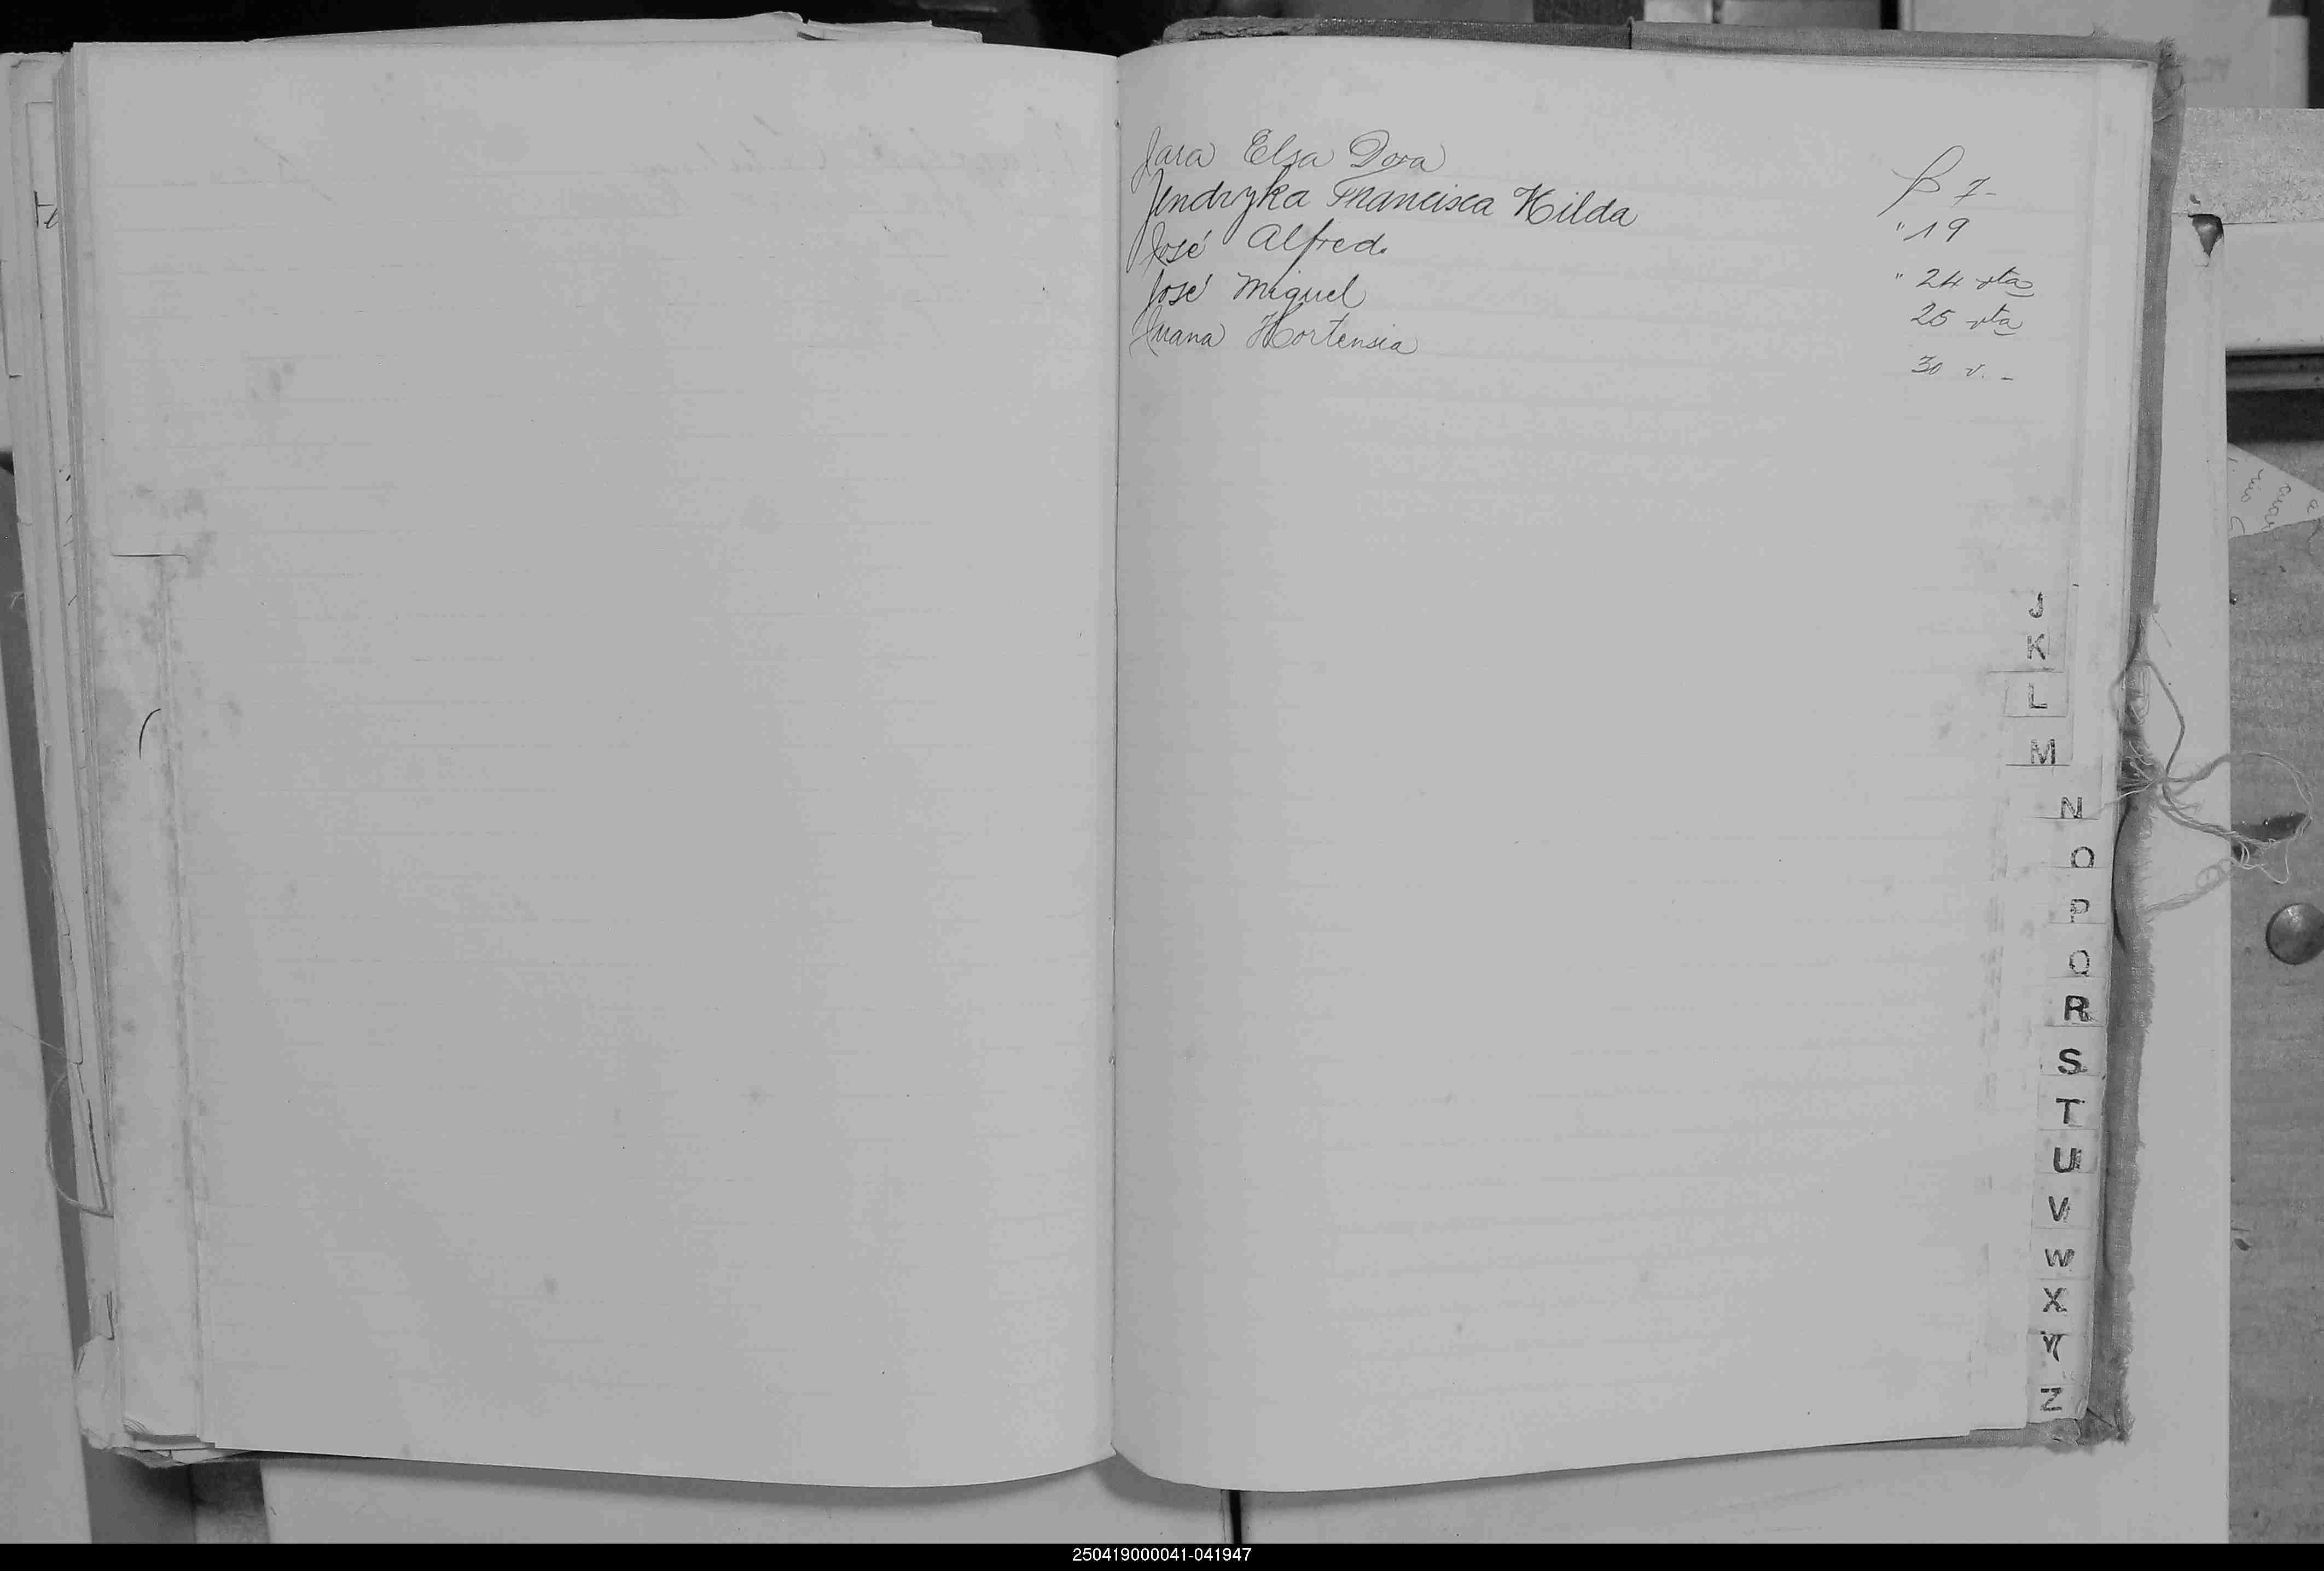 Jara Elsa Dora f 7-
Jendryka Francisca Hilda " 19
José Alfredo " 24 vta
José Miguel 25 vta
Juana Hortensia 30 v. -
J
K
L
M
N
O
P
Q
R
S
T
U
V
W
X
Y
Z
250419000041-041947